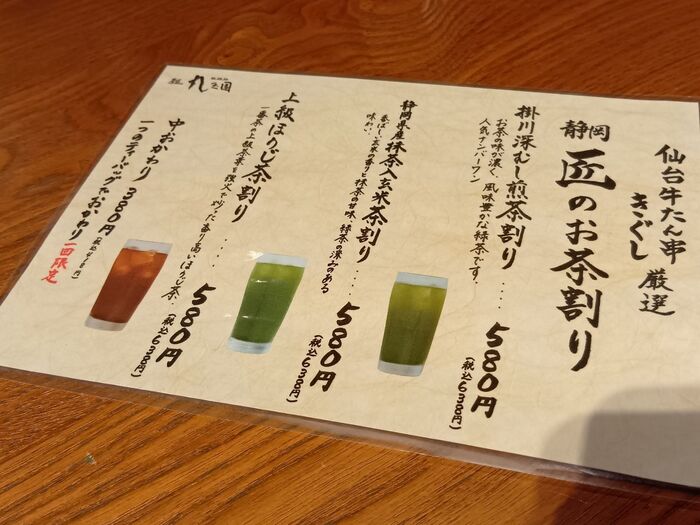 仙台牛たん串
きぐし 厳選
静岡
匠のお茶割り
掛川深むし煎茶割り
お茶の味が濃く、風味豊かな緑茶です。
人気ナンバーワン
‥‥580円
(税込638円)
静岡県産抹茶入玄米茶割り
香ばしい玄米の香りと抹茶の甘味、緑茶の深みのある
味わい。
‥‥580円
(税込638円)
上級ほうじ茶割り
一番茶の上級茶葉を強火で炒った香り高いほうじ茶。
‥‥580円
(税込638円)
中おかわり 380円(税込418円)
一つのティーバッグでおかわり一回限定
丸玉園